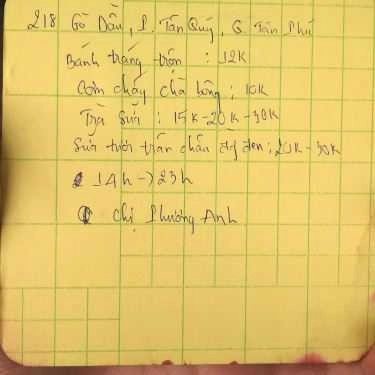 218 Gò Dầu, P. Tân Quý, Q. Tân Phú
Bánh tráng trộn : 12K
Cơm cháy chà bông : 10K
Trà sữa : 15K-20K-30K
Sữa tươi trân châu đg đen : 20K-30K
14h -> 23h
Chị Phương Anh